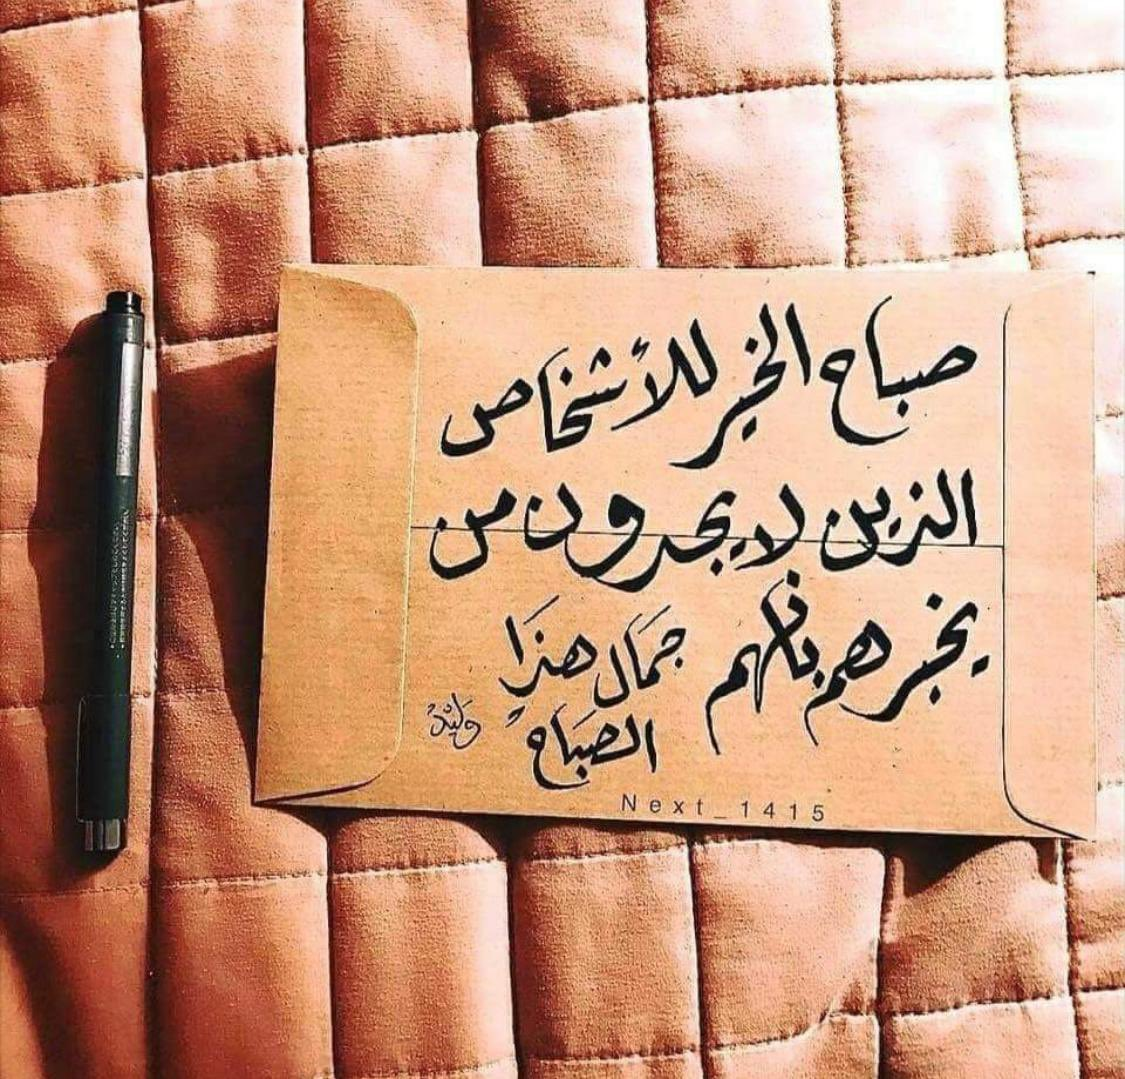 صباح الخير للأشخاص
الذين لا يجدون من
يخبرهم بأنهم
جمال هذا
الصباح
وليد
Next_1415